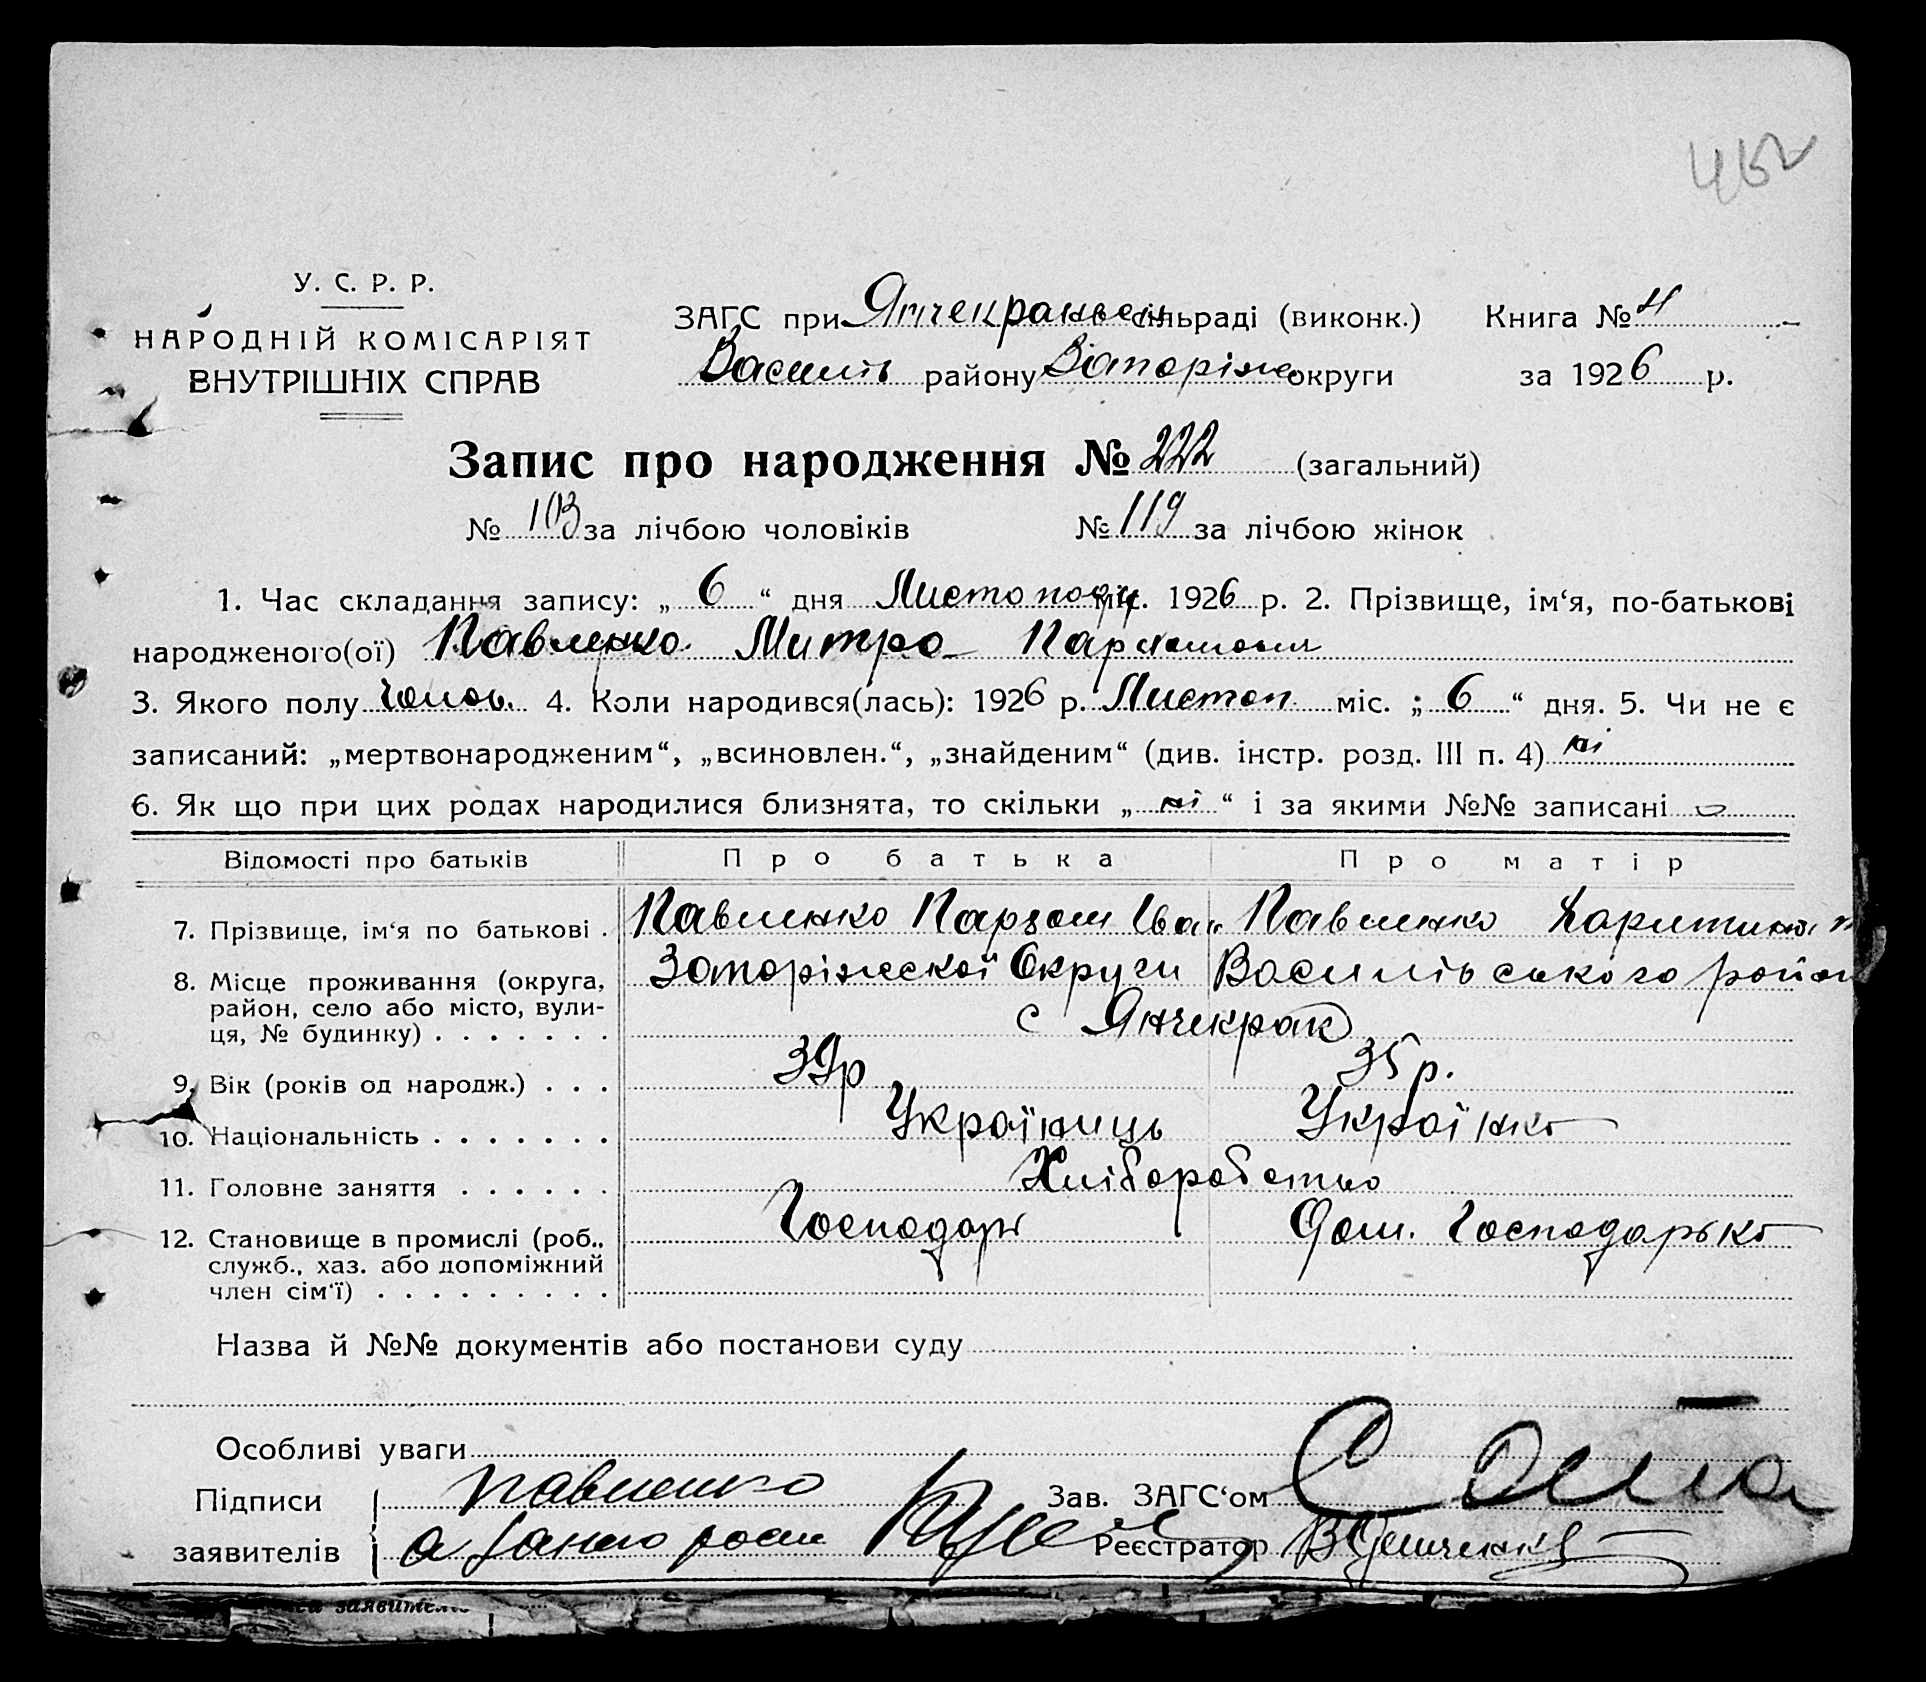 452
У. С. Р. Р.
НАРОДНІЙ КОМІСАРІЯТ
ВНУТРІШНІХ СПРАВ
ЗАГС при Янчекраньск сільраді (виконк.) Книга № 4
Василів району Запоріж округи за 1926 р.
Запис про народження № 222 (загальний)
№ 103 за лічбою чоловіків № 119 за лічбою жінок
1. Час складання запису: „ 6 “ дня Листопада міс. 1926 р. 2. Прізвище, ім‘я, по-батькові
народженого(ої) Павленко Митро
3. Якого полу чолов. 4. Коли народився(лась): 1926 р. Листоп міс. „ 6 “ дня. 5. Чи не є
записаний: „мертвонародженим“, „всиновлен.“, „знайденим“ (див. інстр. розд. III п. 4) ні
6. Як що при цих родах народилися близнята, то скільки „ ні “ і за якими №№ записані
Відомості про батьків Про батька Про матір
7. Прізвище, ім‘я по батькові . Павленко Іван Павленко Харитина
8. Місце проживання (округа, Запоріжской Округи Василівського район
район, село або місто, вули-
ця, № будинку) . . . . . . . с Янчекрак
9. Вік (років од народж.) . . . 39р 35 р.
10. Національність . . . . . . . Україниць Українка
11. Головне заняття . . . . . . Хліборобство
12. Становище в промислі (роб., Господарь Дом. Господарька
служб., хаз. або допоміжний
член сім‘ї) . . . . . . . . .
Назва й №№ документів або постанови суду
Особливі уваги
Підписи Павленко Зав. ЗАГС‘ом
заявителів а Реєстратор
заявителів